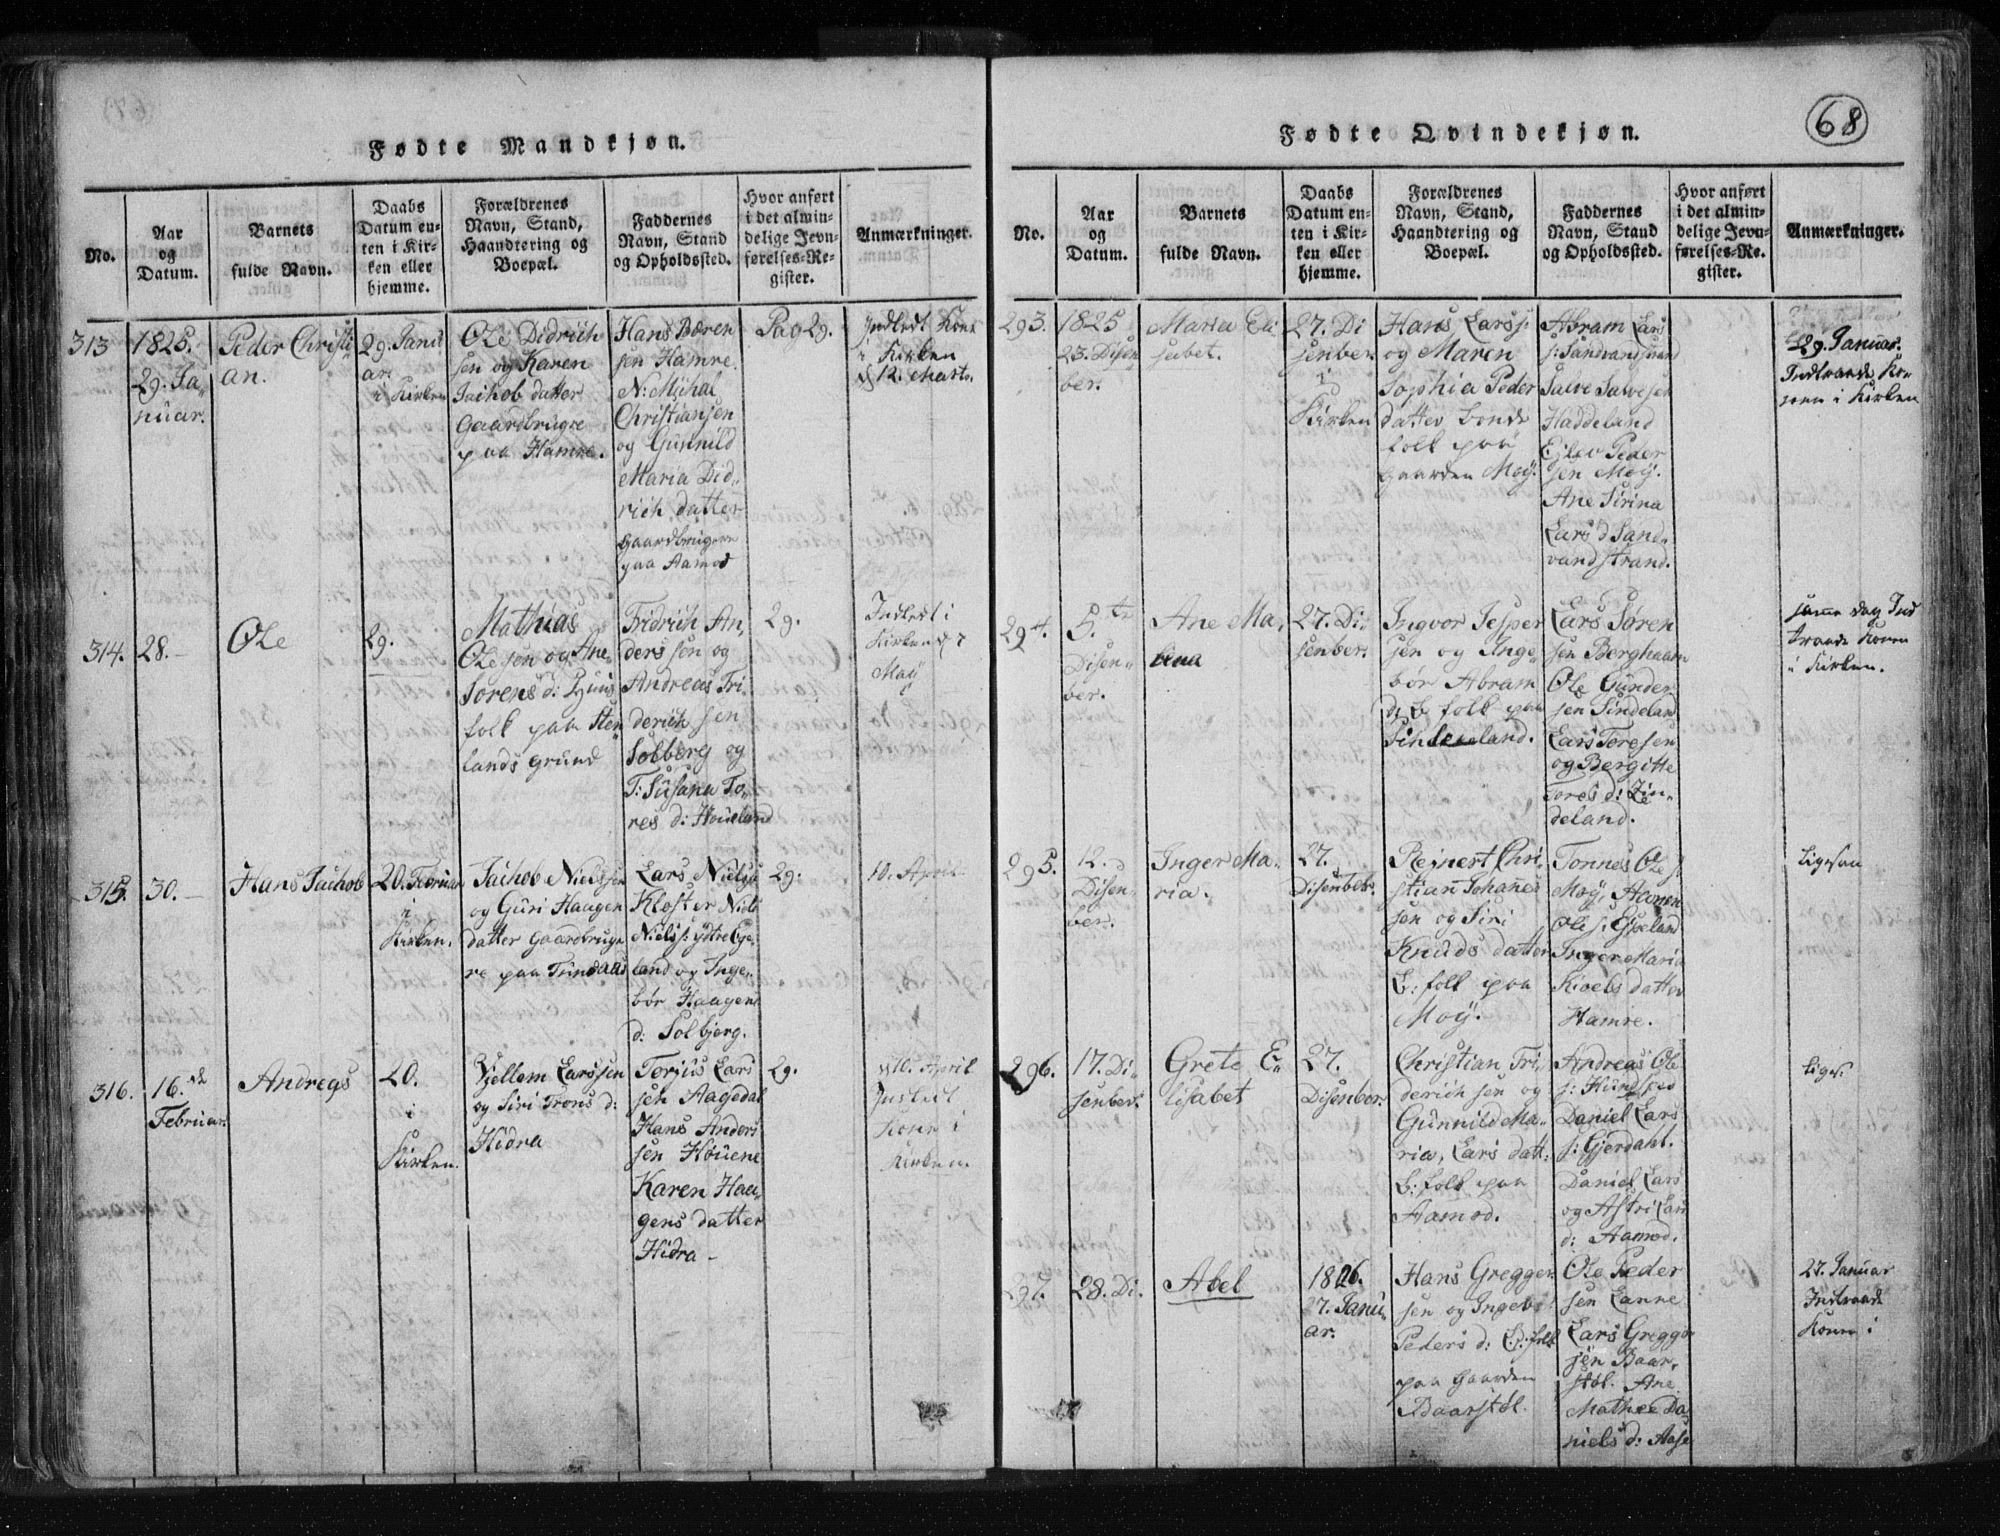 68
Fødte Mandkjøn.
No.
Aar
og
Datum.
Barnets
fulde Navn.
Daabs
Datum en-
ten i Kir-
ken eller
hjemme.
Forældrenes
Navn, Stand,
Haandtering og
Boepæl.
Faddernes
Navn, Stand
og Opholdssted.
Hvor anført
i det almin-
delige Jevn-
førelses-Re-
gister.
Anmærkninger.
313
1825.
29. Ja-
nuar.
Peder Christi
an.
29. Janu
ar.
i Kirken
Ole Didrich
sen og Karen
Jachob datter
Gaardbrugre
paa Hamre.
Hans Bæren
sen Hamre.
N: Michal
Christiansen
og Gunnild
Maria Did-
rich datter
gaardbrugere
paa Aamod
Pag 29.
Indledt Kone
i Kirken
d 12. Marts.
314.
28.
Ole
29.
Mathias
Olesen og Ane
Sørens d:
folk paa Sten
lands grund
Fridrich An,
ders sen og
Andreas Fri
derich sen
Solberg og
T: Susana To-
res d: Houeland
29.
Indledt i
Kirken d 7
May
315.
30.
Hans Jachob
20. Februar
i
Kirken.
Jachob Nielssen
og Guri Haagen
datter gaardbruge
re paa Trindaas
Lars Niels
Kloster Niels
Niels s: ytre Eye
land og Inge-
bør Haagens
d: Solbjerg.
29.
10. April
316.
16.de
Februar.
Andreas
20.
i
Kirken.
Vjellom Larssen
og Siri Trons d:
Hidra
Torjus Lars
sen Aagedal
Hans Anders
sen Høuene
Karen Haa-
gens datter
Hidra
29.
d 10. April
Indledt
Konen i
Kirken.
Fødte Qvindekjøn.
No.
Aar
og
Datum.
Barnets
fulde Navn.
Daabs
Datum en-
ten i Kir-
ken eller
hjemme.
Forældrenes
Navn, Stand,
Haandtering og
Boepæl.
Faddernes
Navn, Stand
og Opholdssted.
Hvor anført
i det almin-
delige Jevn-
førelses-Re-
gister.
Anmærkninger.
293.
1825
23. Disen
ber.
Maria Eli
sabet.
27. Di
senber.
i
Kirken
Hans Lars s:
og Maren
Sophia Peder
datter bonde
folk paa
gaarden Moÿ.
Abram Lars
s: Sandvandstrand
Salve Salvesen
Haddeland
Ejlev Peder
sen Moÿ.
Ane Sirina
Lars d Sand-
vandstrand.
29. Januar.
Indtraade Ko-
nen i Kirken
294.
5.te
Disen-
ber.
Ane Ma,
lena
27. Di-
senber.
Ingvor Jesper
sen og Inge
bør Abram
d: B. folk paa
Lars Søren
sen Berghaam
Ole Gunder
sen Sindeland
Lars Toresen
og Bergitte
Tores d: Zin-
deland.
samme dag Ind
traade Konen
i Kirken.
295.
12.
Disen-
ber.
Inger Ma-
ria.
27.
Disenber.
Rejnert Chri-
stian Johannes
sen og Siri
Knuds datter
B: folk paa
Moÿ.
Tonnes Ole s.
Moÿ,
Ole s: Espeland
Inger Maria
Kioels datter
Hamre.
Ligesaa
296.
17. Di-
senber.
Grete E-
lisabet
27.
Disenber.
Christian Fri-
derich sen og
Gunnild Ma-
ria, Lars datt:
b: folk paa
Aamod.
Andreas Ole
s:
Daniel Lars
s: Gjerdahl.
Daniel Lars
og Astri Lars
d: Aamod.
Liges.
297.
28. Di.
Abel
1826.
27. Janu-
ar.
Hans Gregger
sen og Ingeb:
Peders d: B: folk
paa gaarden
Baarstøl.
Ole Peder
sen Lanne
Lars Gregger
sen Baar,
støl. Ane
Mathea Da
niels d: Aase
27. Januar
Indtraade
Konen i